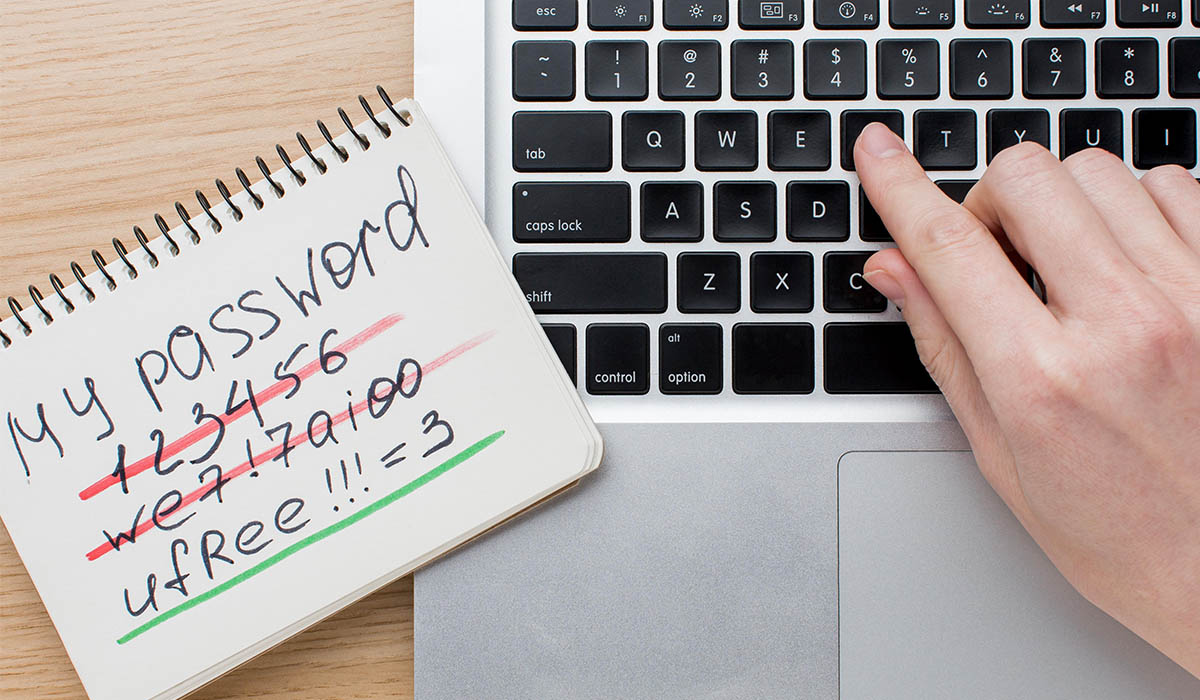 My password
123456
we7!7aioo
ufRee!!!=3
esc F1 F2 F3 F4 F5 F6 F7 F8
~ ` ! 1 @ 2 # 3 $ 4 % 5 ^ 6 & 7 * 8
tab Q W E T Y U I
caps lock A S D
shift Z X C
control alt option